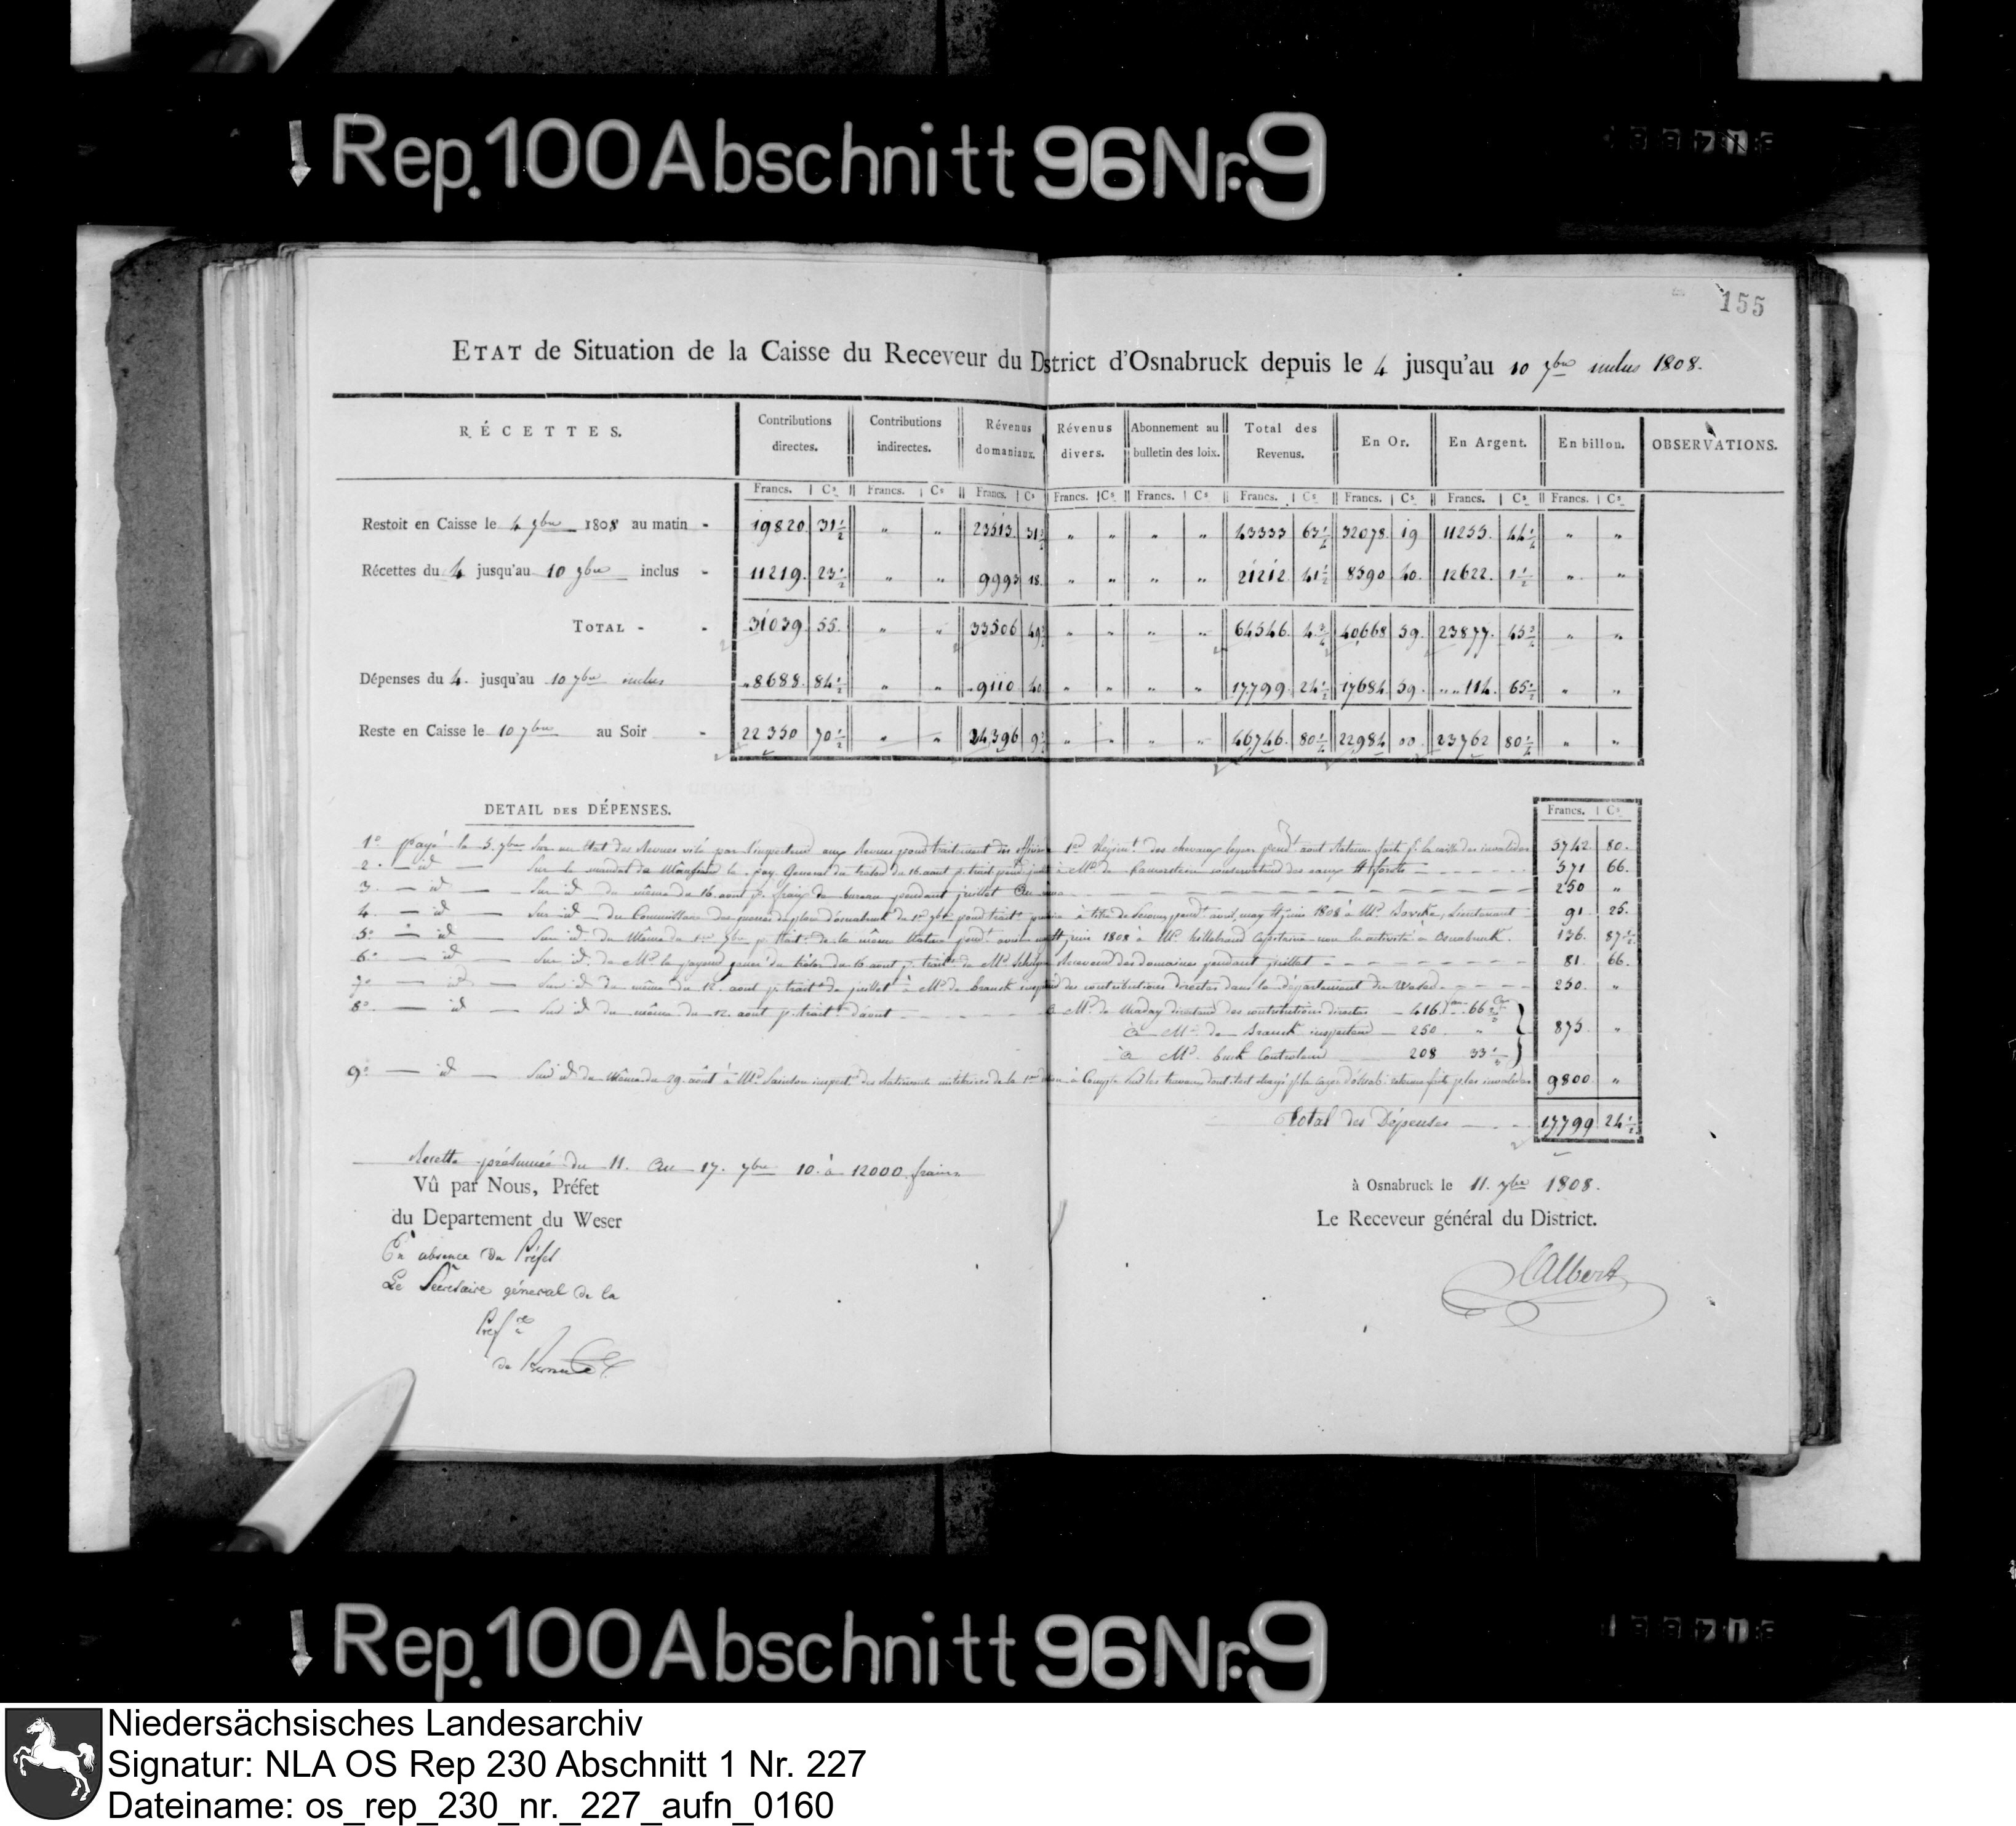 Rep. 100 Abschnitt 96 Nr. 9
155
ETAT de Situation de la Caisse du Receveur du Dstrict d'Osnabruck depuis le 4 jusqu'au 10 7bre inclus 1808.
RÉCETTES. Contributions directes. Contributions indirectes. Révenus domaniaux. Révenus divers. Abonnement au bulletin des loix. Total des Revenus. En Or. En Argent. En billon. OBSERVATIONS.
Francs. Cs Francs. Cs Francs. Cs Francs. Cs Francs. Cs Francs. Cs Francs. Cs Francs. Cs Francs. Cs
Restoit en Caisse le 4 7bre 1808 au matin - 19820 31½ " " 23513 31¾ " " " " 43333 63¼ 32078. 19 11255. 44¼ " "
Récettes du 4 jusqu'au 10 7bre inclus - 11219. 23½ " " 9993 18. " " " " 21212 41½ 8590 40. 12622. 1½ " "
TOTAL - - 31039 55. " " 33506 49¾ " " " " 64546. 4¾ 40668 59. 23877. 45¾ " "
Dépenses du 4. jusqu'au 10 7bre inclus " 8688. 84½ " " " 9110 40 " " " " 17799. 24½ 17684 59. " " 114. 65½ " "
Reste en Caisse le 10 7bre au Soir - 22350 70½ " " 24396 9¾ " " " " 46746. 80¼ 22984 00. 23762 80¼ " "
DETAIL DES DÉPENSES. Francs. Cs
1o payé le 5. 7bre Sur un Etat des Revues par l'inspecteur aux Revues pour traitement des officiers 1er Régimt des chevaux legers pendt aout Retenue faite p. la caisse des invalides 5742. 80.
2. - id - Sur le mandat de Monsieur le pay. General du trésor du 16 aout p. trait pend juillet à Mr de conservateur des eaux & forêts 571 66.
3. - id - Sur id du même du 16. aout p. fraix de bureau pendant juillet Au 250 "
4. - id - Sur id du Commissaire des guerres de place d'osnabruck du 1er 7bre pour trait à titre de Secours pendt avril, may & juin 1808 à Mr Lieutenant 91. 25.
5o - id - Sur id. du Même du 1er 7bre p. trait. de la même Nature pendt juin 1808 à Mr hillebrand Capitaine en activité à Osnabruck. 136. 87½
6o - id - Sur id. de Mr le payeur génér du trésor du 16 aout p. trait de Mr Receveur des domaines pendant juillet 81. 66.
7o - id - Sur id du même du 12. aout p. trait de juillet à Mr de Branck inspect des contributions directes dans le département du Weser 250. "
8o - id - Sur id du même du 12. aout p. trait d'aout à Mr de Maday directeur des contributions directes - 416. 66⅔
à Mr de Branck inspecteur 250. " 875. "
à Mr Controleur 208 33⅓
9o - id - Sur id du Même du 29. août à Mr inspect des batiments militaires de la 1ere à Compte Sur les travaux dont il est chargé retenue faite p. les invalides 9800 "
Total des Dépenses 17799 24½
Recette présumée du 11. au 17. 7bre 10. à 12000. francs
Vû par Nous, Préfet
du Departement du Weser
En absence du Préfet
Le Secretaire général de la
Préfre
à Osnabruck le 11. 7bre 1808.
Le Receveur général du District.
Albert
Rep. 100 Abschnitt 96 Nr. 9
Niedersächsisches Landesarchiv
Signatur: NLA OS Rep 230 Abschnitt 1 Nr. 227
Dateiname: os_rep_230_nr._227_aufn_0160